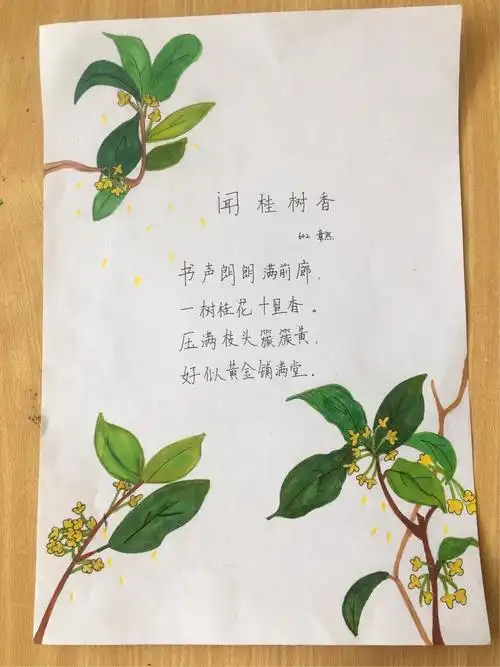 闻桂树香
602 章然
书声朗朗满前廊，
一树桂花十里香。
压满枝头簇簇黄，
好似黄金铺满堂．